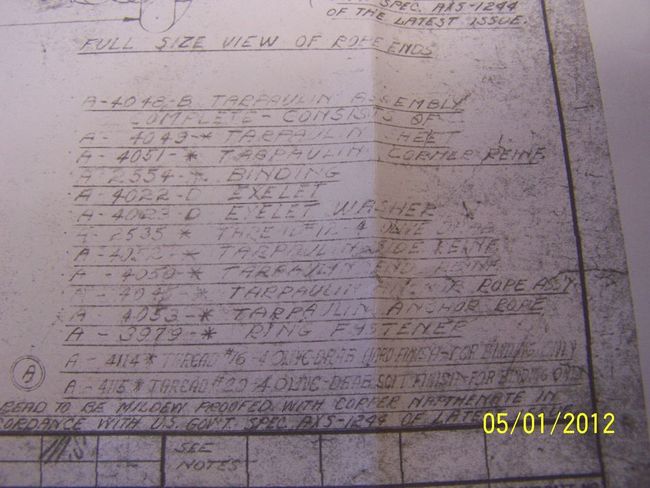 SPEC. AXS-1244
OF THE LATEST ISSUE.
FULL SIZE VIEW OF ROPE ENDS
A-4048-B TARPAULIN ASSEMBLY
COMPLETE - CONSISTS OF
A- 4049-* TARPAULIN SHEET
A- 4051-* TARPAULIN CORNER REINF
A-2554-* BINDING
A-4022-D EYELET
A-4023-D EYELET WASHER
A-2535 *
A- * TARPAULIN SIDE REINF
A - 4050 * TARPAULIN END REINF
* TARPAULIN ROPE ASSY
A - 4053 - * TARPAULIN ANCHOR ROPE
A - 3979 - * RING FASTENER
A - 4114 * THREAD #16-4 OLIVE-DRAB HARD FINISH-FOR BINDING ONLY
A
A - 4115 * THREAD #20-4 OLIVE-DRAB SOFT FINISH-FOR BINDING ONLY
TO BE MILDEW PROOFED WITH COPPER NAPTHENATE IN
CORDANCE WITH U.S. GOV'T. SPEC. AXS-1244 OF
SEE
NOTES
05/01/2012